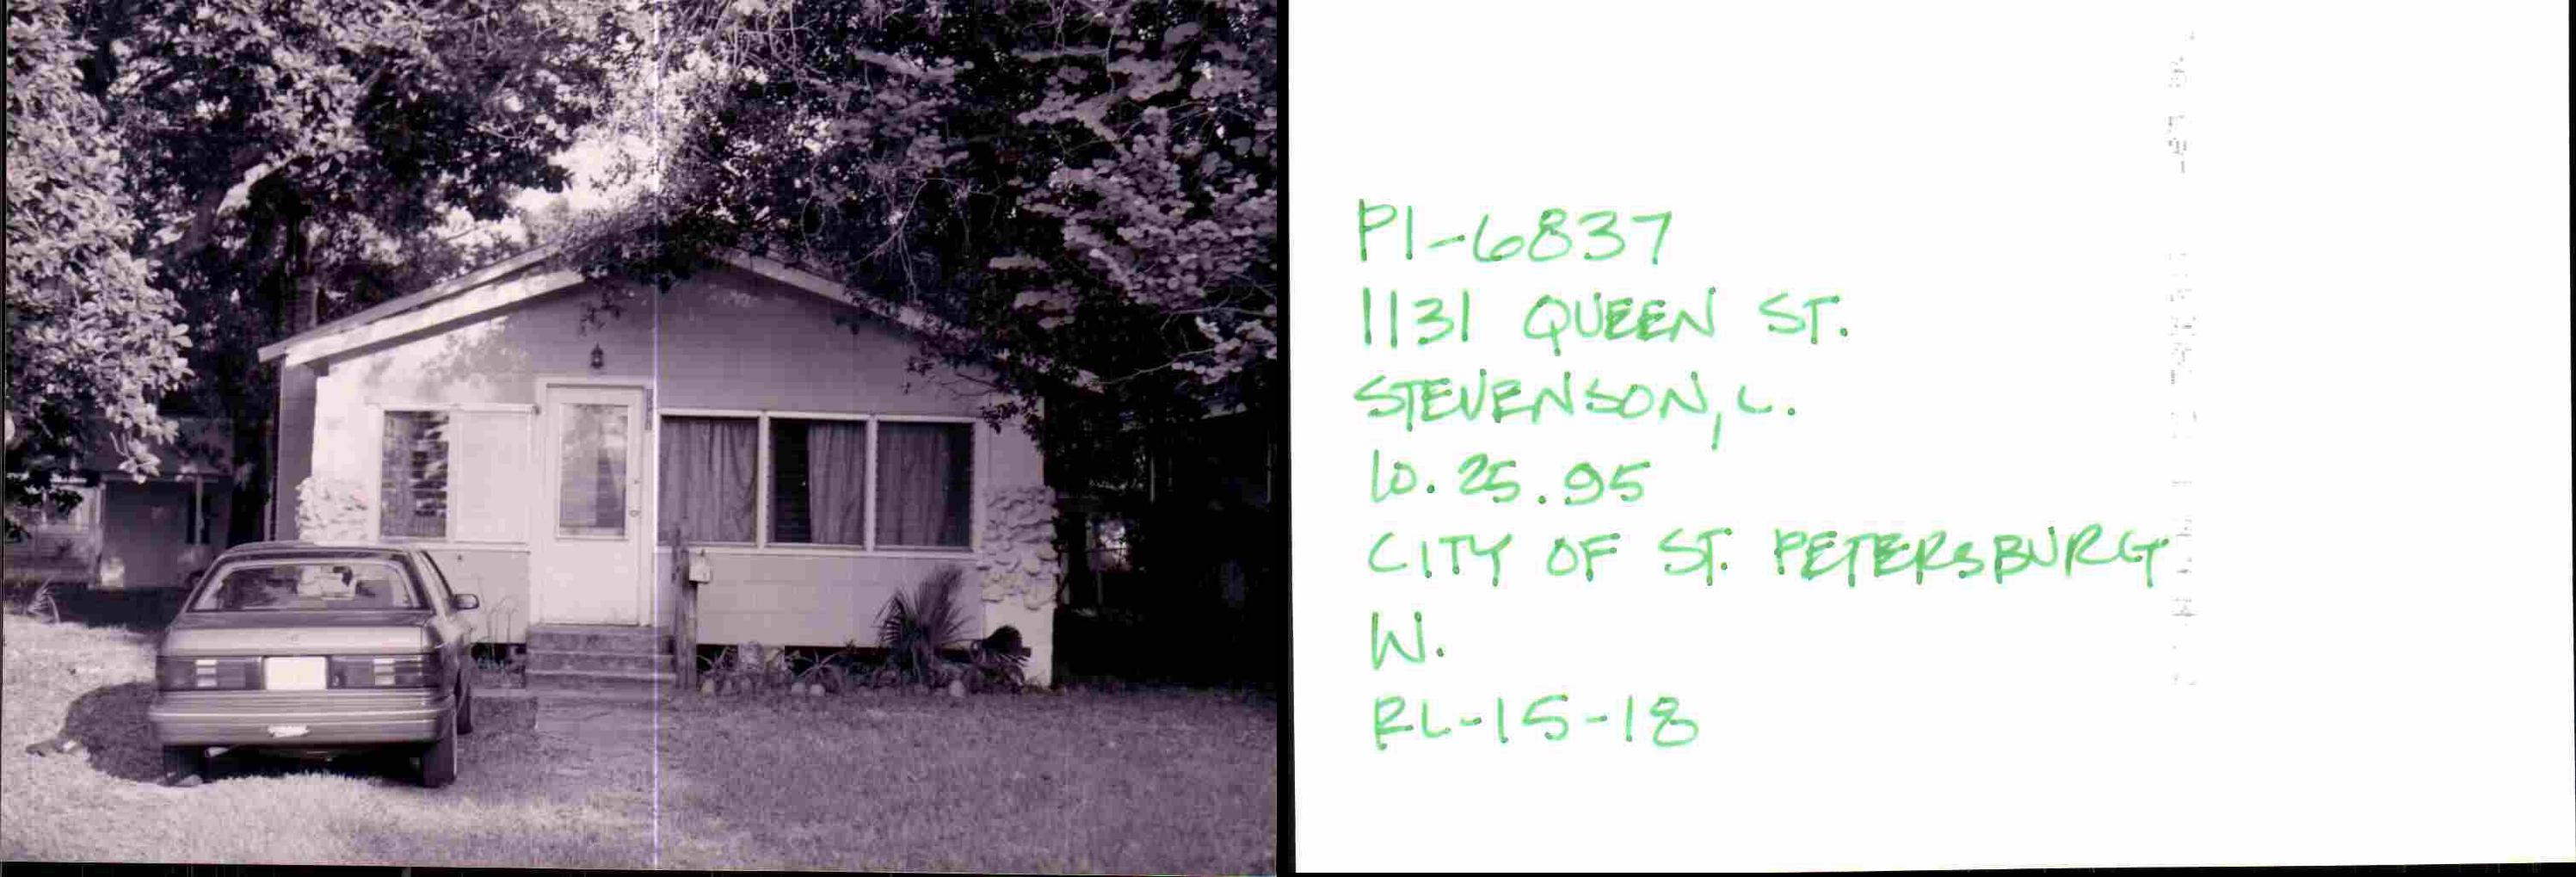 PI-6837
1131 QUEEN ST.
STEVENSON, L.
10.25.95
CITY OF ST. PETERSBURG
W.
RL-15-18